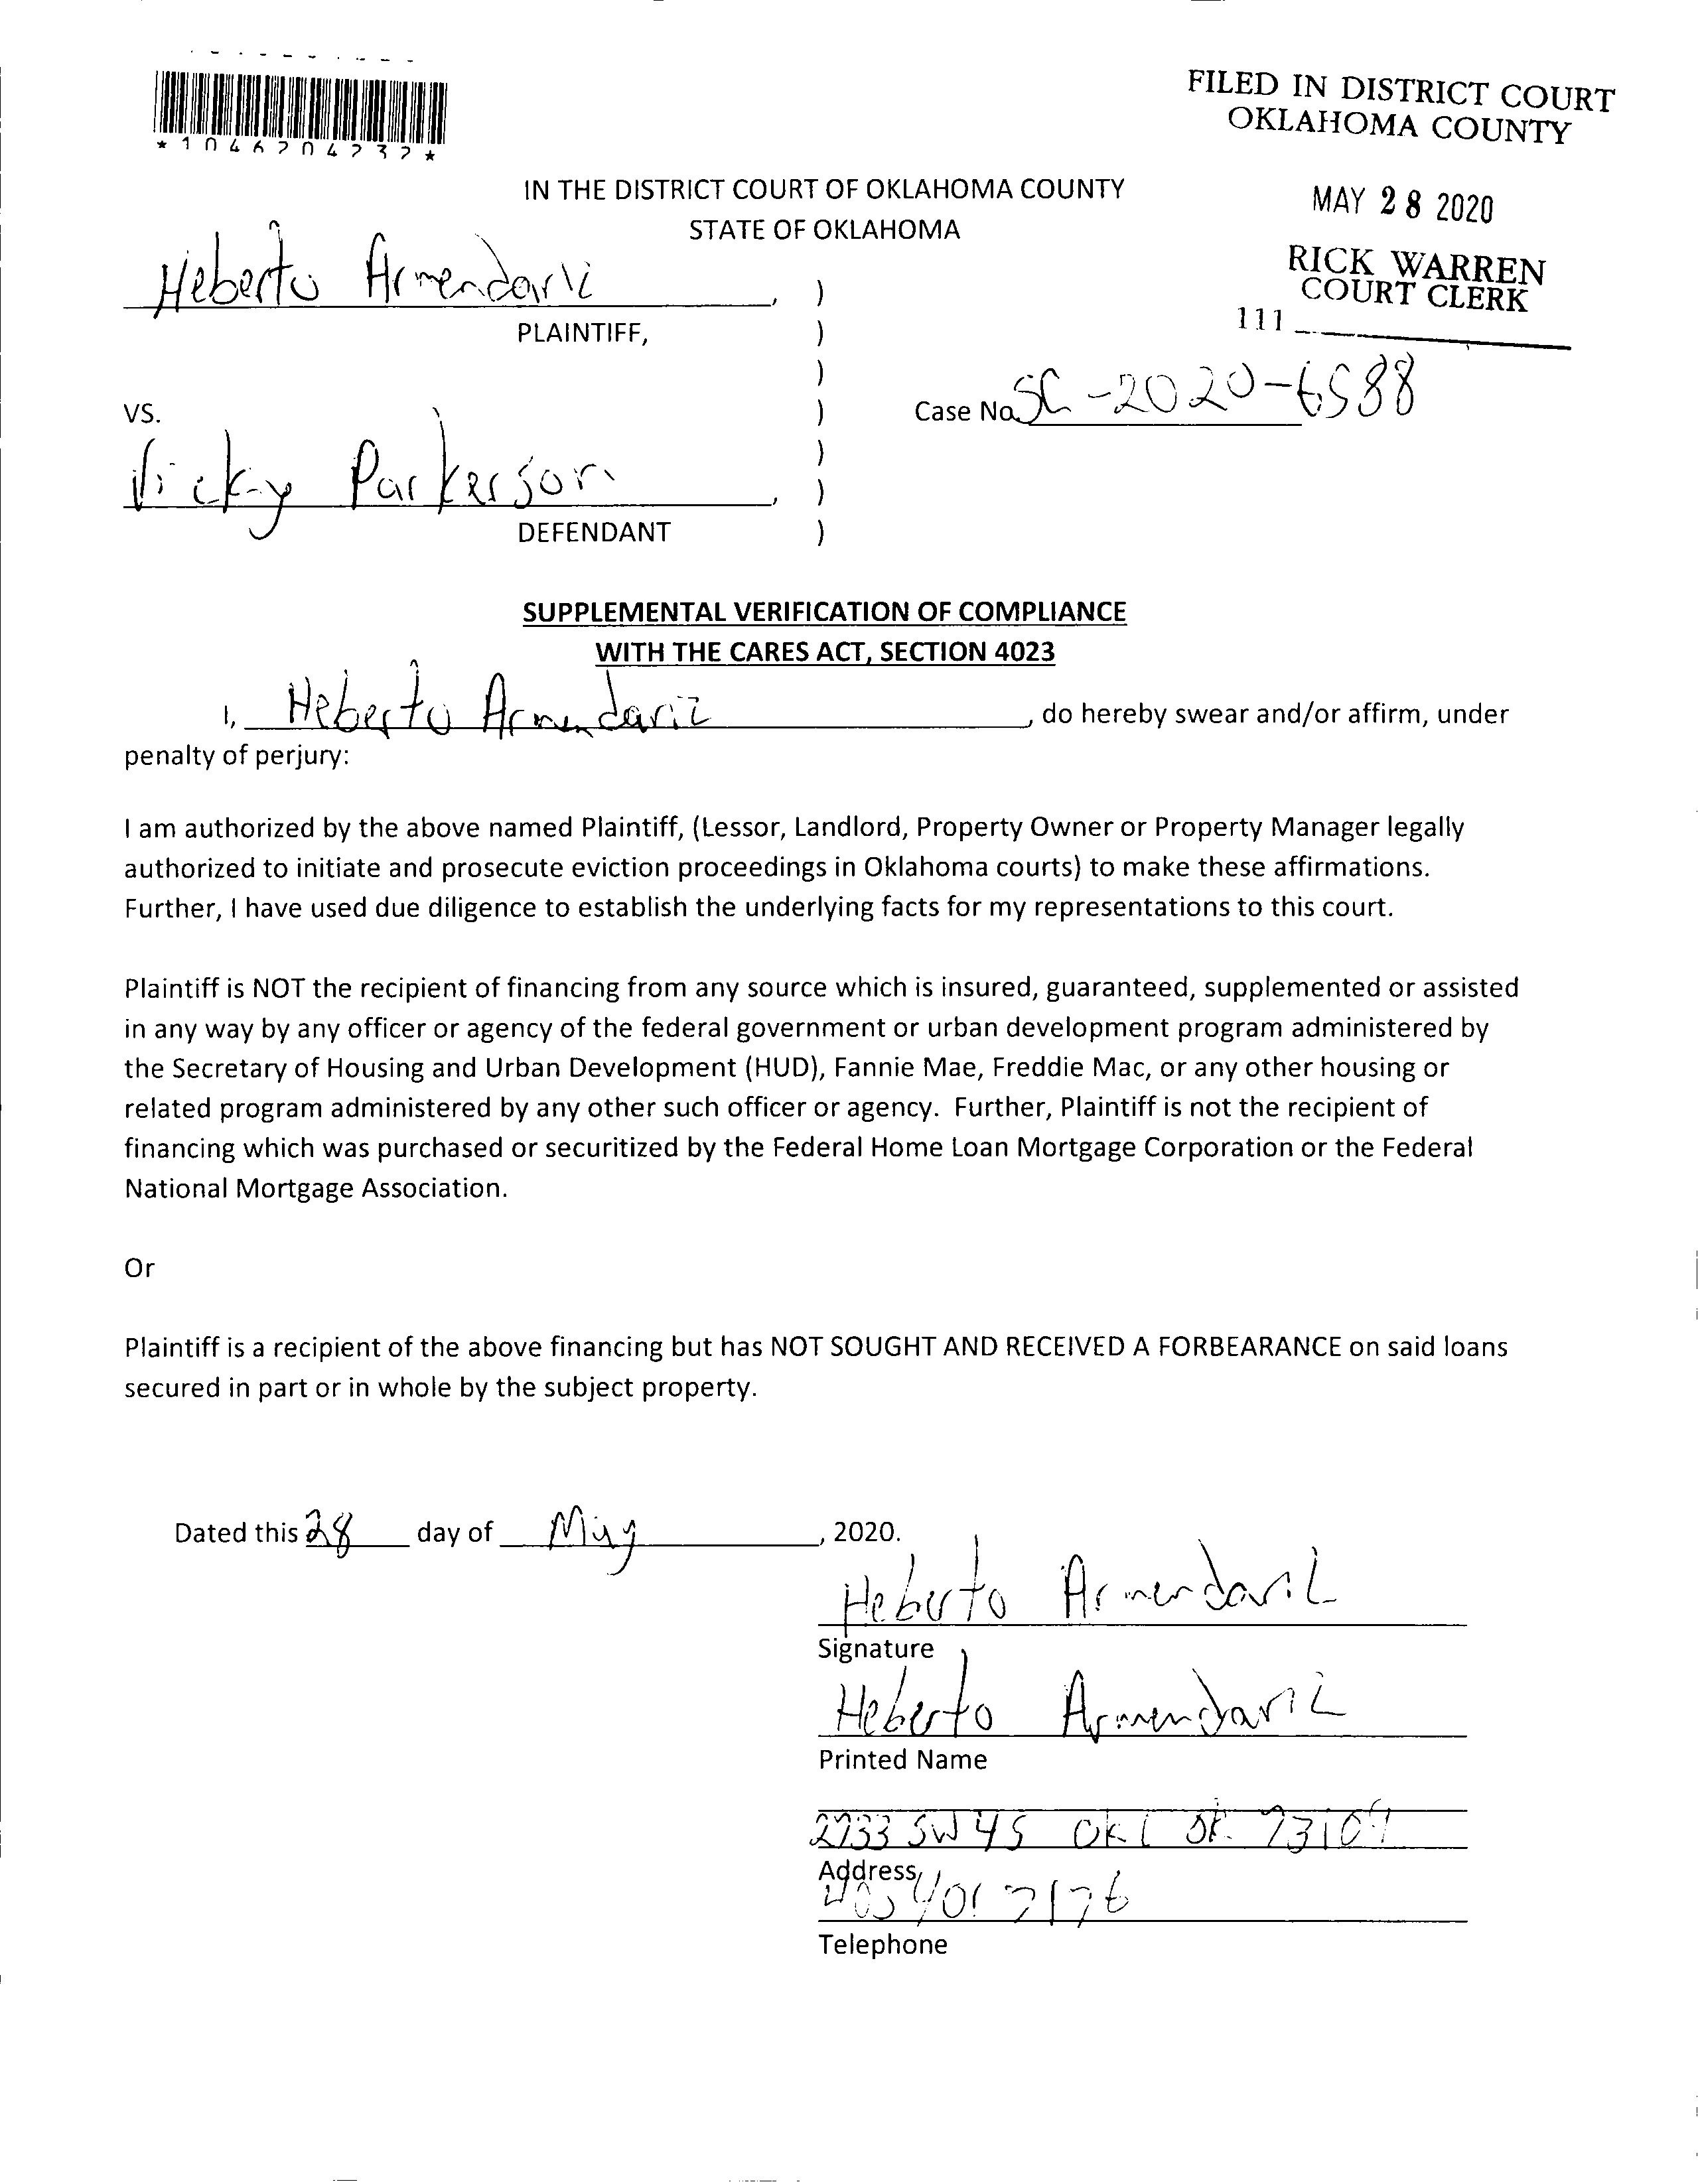 FILED IN DISTRICT COURT
OKLAHOMA COUNTY
MAY 28 2020
RICK WARREN
COURT CLERK
111
IN THE DISTRICT COURT OF OKLAHOMA COUNTY
STATE OF OKLAHOMA
Heberto Armendariz, )
PLAINTIFF, )
)
VS. ) Case No. SC-2020-6588
)
Vicky Parkerson, )
DEFENDANT )
SUPPLEMENTAL VERIFICATION OF COMPLIANCE
WITH THE CARES ACT, SECTION 4023
I, Heberto Armendariz, do hereby swear and/or affirm, under
penalty of perjury:
I am authorized by the above named Plaintiff, (Lessor, Landlord, Property Owner or Property Manager legally
authorized to initiate and prosecute eviction proceedings in Oklahoma courts) to make these affirmations.
Further, I have used due diligence to establish the underlying facts for my representations to this court.
Plaintiff is NOT the recipient of financing from any source which is insured, guaranteed, supplemented or assisted
in any way by any officer or agency of the federal government or urban development program administered by
the Secretary of Housing and Urban Development (HUD), Fannie Mae, Freddie Mac, or any other housing or
related program administered by any other such officer or agency. Further, Plaintiff is not the recipient of
financing which was purchased or securitized by the Federal Home Loan Mortgage Corporation or the Federal
National Mortgage Association.
Or
Plaintiff is a recipient of the above financing but has NOT SOUGHT AND RECEIVED A FORBEARANCE on said loans
secured in part or in whole by the subject property.
Dated this 28 day of May, 2020.
Heberto Armendariz
Signature
Heberto Armendariz
Printed Name
2733 SW 45 OKC OK. 73109
Address
405 401 7176
Telephone